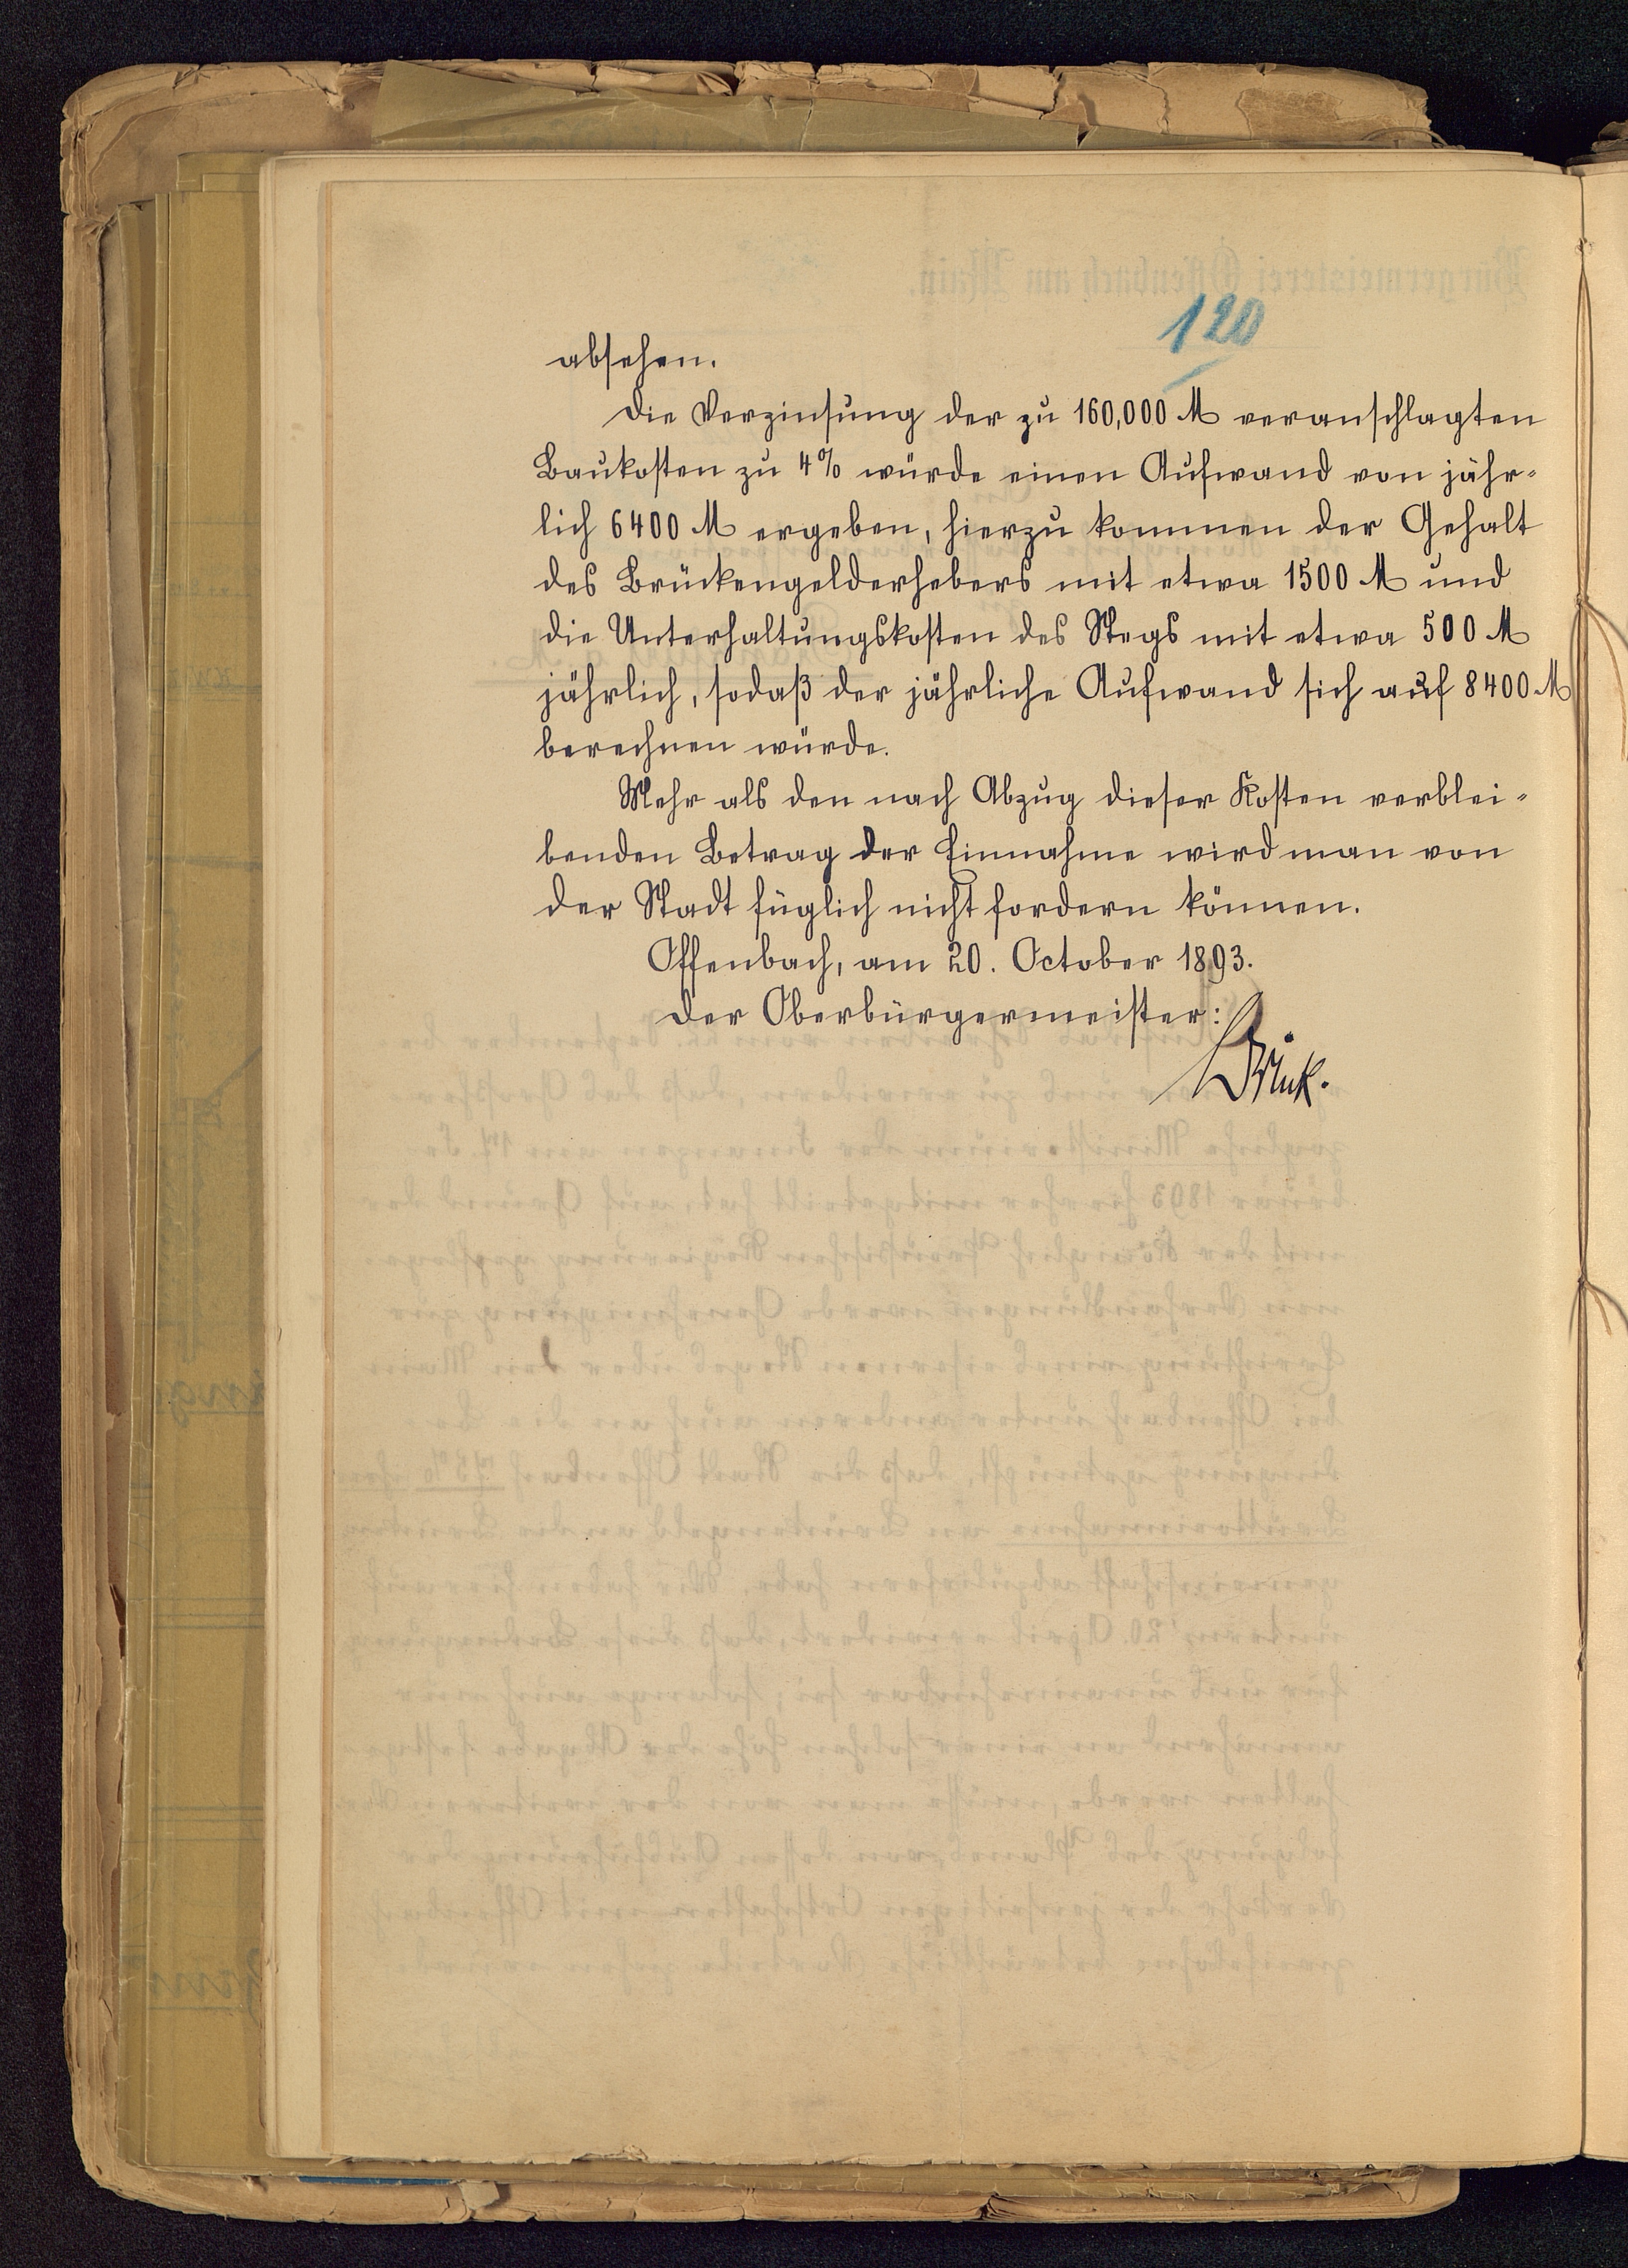 120
absehen.
Die Verzinsung der zu 160,000 M veranschlagten
Baukosten zu 4% würde einen Aufwand von jähr-
lich 6400 M ergeben, hierzu kommen der Gehalt
des Brückengelderhebers mit etwa 1500 M und
die Unterhaltungskosten des Stegs mit etwa 500 M
jährlich, sodaß der jährliche Aufwand sich auf 8400 M
berechnen würde.
Mehr als den nach Abzug dieser Kosten verblei-
benden Betrag der Einnahme wird man von
der Stadt füglich nicht fordern können.
Offenbach, am 20. October 1893.
Der Oberbürgermeister:
Brink.